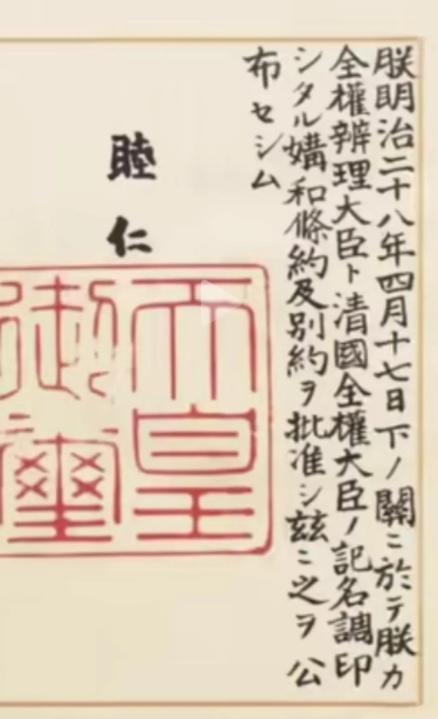 朕明治二十八年四月十七日下ノ關ニ於テ朕カ
全權辨理大臣ト清國全權大臣ノ記名調印
シタル媾和條約及別約ヲ批准シ茲ニ之ヲ公
布セシム
睦仁
天皇
御璽